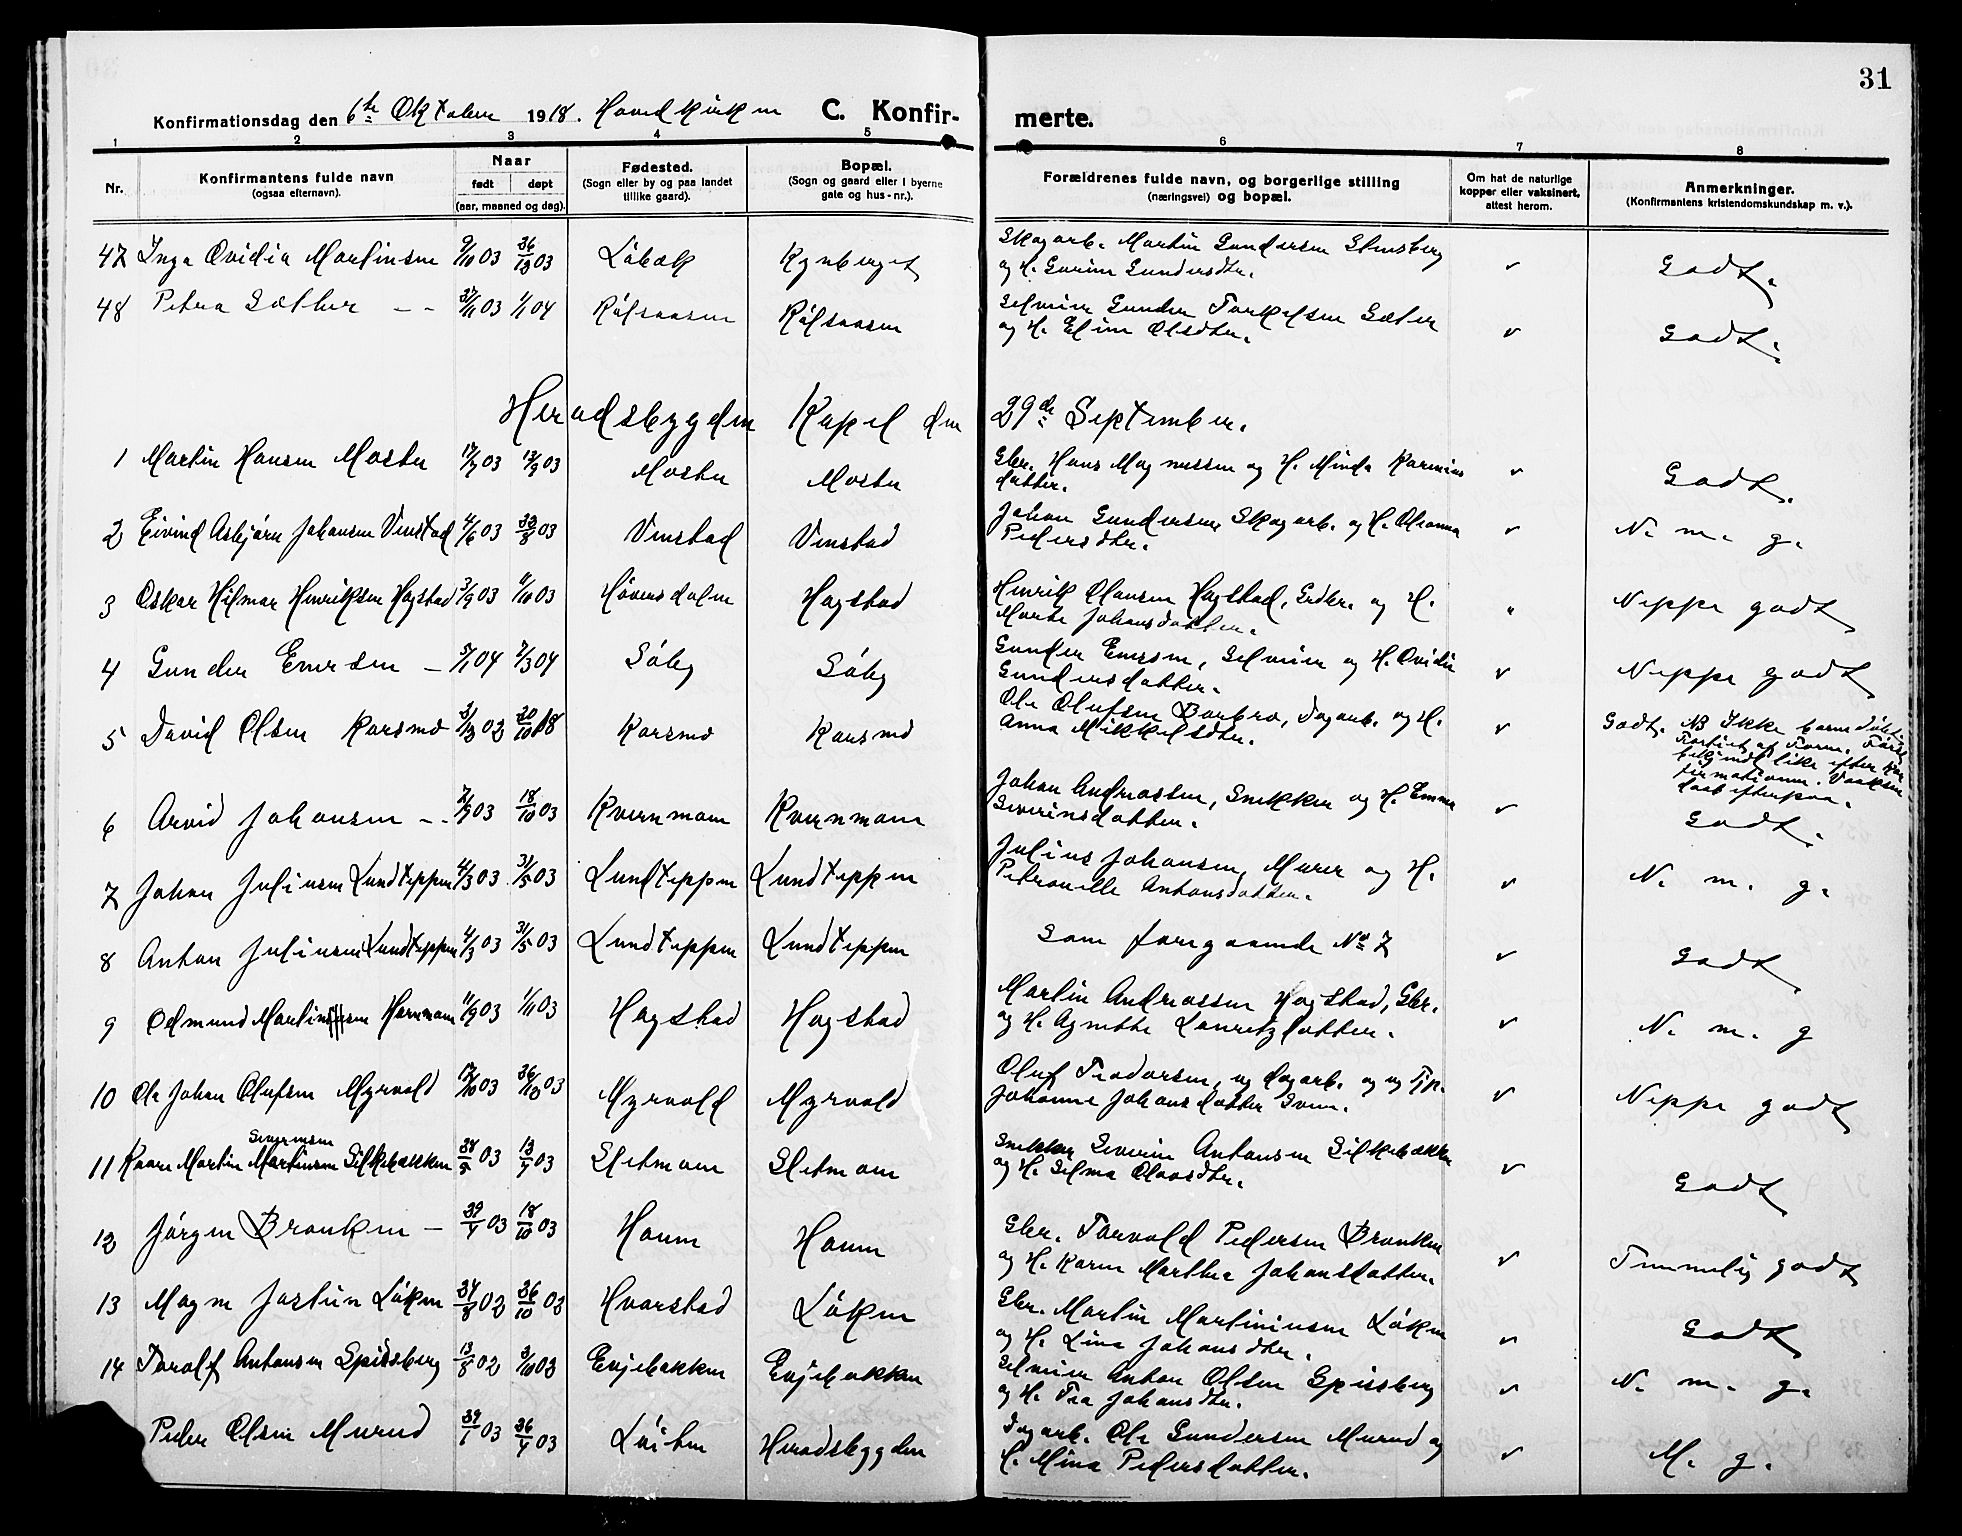 31
Konfirmationsdag den 6te Oktober 1918. Hovedkirken C. Konfir- merte.
1 2 3 4 5 6 7 8
Nr. Konfirmantens fulde navn (ogsaa efternavn). Naar født døpt (aar, maaned og dag). Fødested. (Sogn eller by og paa landet tillike gaard). Bopæl. (Sogn og gaard eller i byerne gate og hus-nr.). Forældrenes fulde navn, og borgerlige stilling (næringsvei) og bopæl. Om hat de naturlige kopper eller vaksinert, attest herom. Anmerkninger. (Konfirmantens kristendomskundskap m. v.).
47 Inga Ovidia Martinsen 9/10 03 26/12 03 Løbæk Rynberget Skogarb. Martin Gundersen Stensberg
og H. Gurine Gundersdtr. v Godt.
48 Petra Sæther - - 27/11 03 1/1 04 Kølsaasen Kølsaasen Selveier Gunder Torkelsen Sæter
og H. Eline Olsdtr. v Godt.
Heradsbygden Kapel den 29de September.
1 Martin Hansen Moster 17/7 03 13/9 03 Moster Moster Gbr. Hans Magnussen og H. Minda Karinius
datter. v Godt.
2 Eivind Asbjørn Johansen Vinstad 4/6 03 23/8 03 Vinstad Vinstad Johan Gundersen, Skogarb. og H. Oleanna
Pedersdtr. v N. m. g.
3 Oskar Hilmar Henriksen Hagstad 3/9 03 11/10 03 Høversdalen Hagstad Henrik Olausen Hagstad, Grdbr. og H.
Marte Johansdatter. " Neppe godt
4 Gunder Enersen - 5/1 04 2/3 04 Søby Søby Gunder Enersen, Selveier og H. Ovidie
Gundersdatter. v Neppe godt
5 David Olsen Karsmo 31/3 02 20/10 18 Karsmo Karsmo Ole Olufsen Barbro, Dagarb. og H.
Anna Mikkelsdtr. v Godt. NB Ikke barnedøbt.
6 Arvid Johansen - - 2/9 03 18/10 03 Kvernmoen Kvernmoen Johan Andreassen, Snekker og H. Emma
Severinsdatter. v Godt.
7 Johan Juliusen Lundteppen 4/3 03 31/5 03 Lundteppen Lundteppen Julius Johansen, Murer og H.
Petronille Antonsdatter. v N. m. g.
8 Anton Juliusen Lundteppen 4/3 03 31/5 03 Lundteppen Lundteppen Som foregaaende No 7 v Godt
9 Odmund Martinsen 11/9 03 1/11 03 Hagstad Hagstad Martin Andreassen Hagstad, Gbr.
og H. Agnethe Lauritzdatter. v N. m. g
10 Ole Johan Olufsen Myrvold 17/10 03 26/12 03 Myrvold Myrvold Oluf Teodorsen, ug dagarb. og ug Tjp.
Johanne Johansdatter Sveen. v Neppe godt
11 Kaare Martin Martinsen Severinsen Silkebækken 03 03 Sletmoen Sletmoen Snekker Severin Antonsen Silkebækken
og H. Selma Olausdtr. v Godt
12 Jørgen Bronken - 29/7 03 18/10 03 Haven Haven Gbr. Torvald Pedersen Bronken
og H. Karen Marthea Johansdatter. v Temmelig godt
13 Magne Jostein Løken 24/8 03 26/10 03 Hvarstad Løken Gbr. Martin Martiniusen Løken
og H. Lina Johansdtr. v Godt
14 Torolf Antonsen Spissberg 13/8 02 3/10 03 Evjebakken Evjebakken Selveier Anton Olsen Spissberg
og H. Tea Johansdtr. v N. m. g.
Peder Olsen Murud 29/1 03 26/4 03 Løiten Heradsbygden Dagarb. Ole Gundersen Murud og
H. Mina Pedersdatter. v M. g.